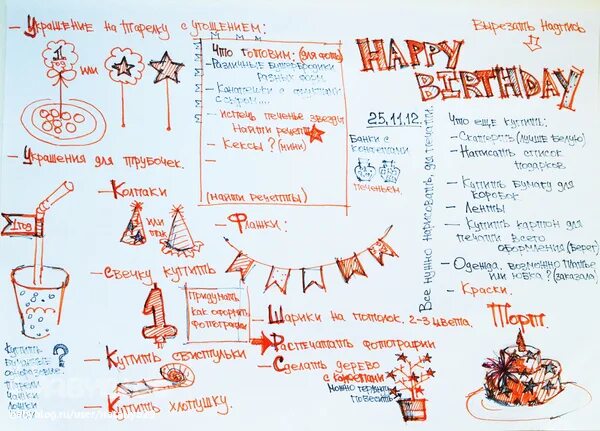 - Украшение на тарелку с угощением:
1
год
или
- Украшения для трубочек.
1 год
- Колпаки
или
так
- Свечку купить
1
Придумать
как оформить
фотографии
Купить
бумажные
одноразовые
Тарелки
Чашки
Ложки
?
- Купить свистульки
- Купить хлопушку.
Что готовим: (для фото)
- Различные бутерброды
разных форм.
- Канапешки с фруктами
с сыром....
- Испечь печенье звезды
Найти рецепт
- Кексы? (мини)
(найти рецепты)
- Флажки:
- Шарики на потолок. 2-3 цвета.
- Распечатать фотографии
- Сделать дерево
с конфетами
Можно горшки
повесить
Вырезать надпись
HAPPY
BIRTHDAY
25.11.12.
Банки с
конфетами
Печеньем.
Все нужно нарисовать для печати.
Что еще купить:
- Скатерть (лучше белую)
- Написать список
подарков
- Купить бумагу для
коробок
- Ленты
- Купить картон для
печати всего
оформления (Берег)
- Одежда, возможно платье
или юбка? (заказала)
- Краски.
Торт.